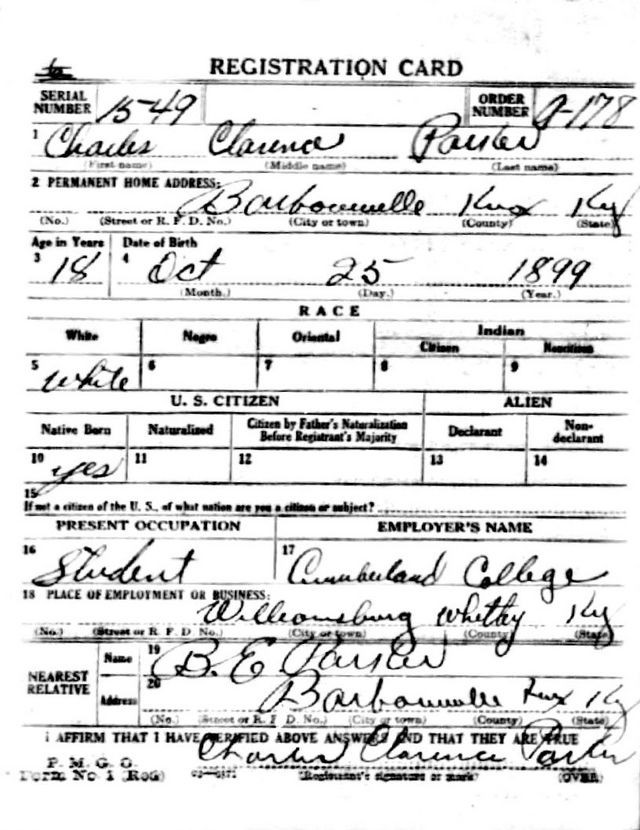 REGISTRATION CARD
SERIAL NUMBER 1549 ORDER NUMBER A-178
1 Charles Clarence Parker
(First name) (Middle name) (Last name)
2 PERMANENT HOME ADDRESS: Barbourville Knox Ky
(No.) (Street or R. F. D. No.) (City or town) (County) (State)
Age in Years Date of Birth
3 18 4 Oct 25 1899
(Month.) (Day.) (Year.)
RACE
White Negro Oriental Indian
Citizen Noncitizen
5 White 6 7 8 9
U. S. CITIZEN ALIEN
Native Born Naturalized Citizen by Father's Naturalization Before Registrant's Majority Declarant Non-declarant
10 yes 11 12 13 14
15
If not a citizen of the U. S., of what nation are you a citizen or subject?
PRESENT OCCUPATION EMPLOYER'S NAME
16 Student 17 Cumberland College
18 PLACE OF EMPLOYMENT OR BUSINESS:
Williamsburg Whitley Ky
(No.) (Street or R. F. D. No.) (City or town) (County) (State)
NEAREST RELATIVE Name 19 B. E Parker
Address 20 Barbourville Knox Ky
(No.) (Street or R. F. D. No.) (City or town) (County) (State)
I AFFIRM THAT I HAVE VERIFIED ABOVE ANSWERS AND THAT THEY ARE TRUE
Charles Clarence Parker
P. M. G. O.
Form No 1 (Red) (Registrant's signature or mark) (OVER)